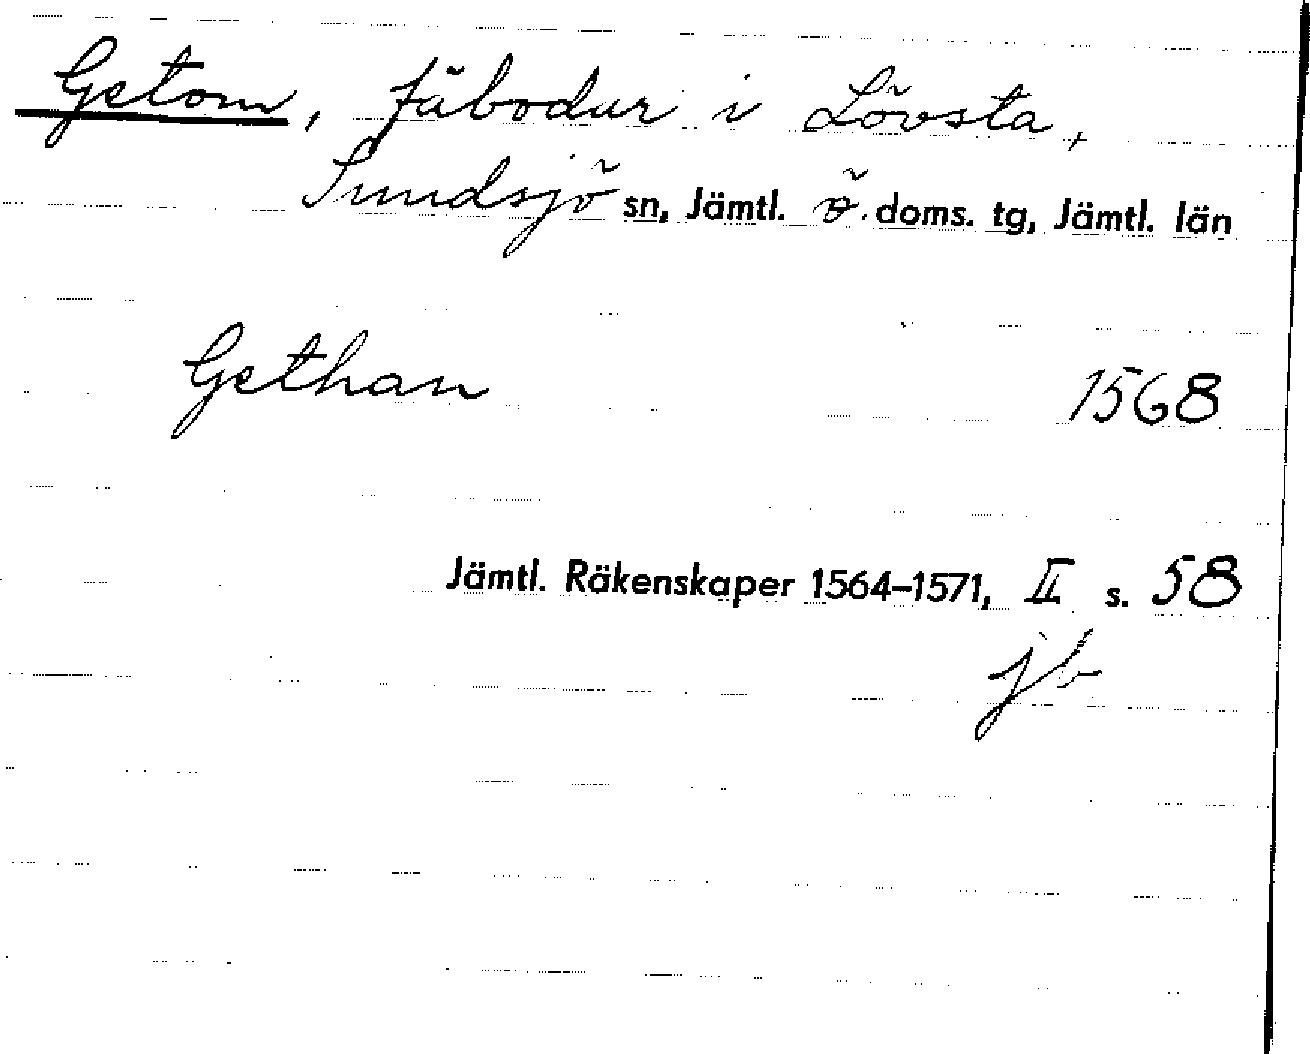 Getom, fäbodar i Lövsta,
Sundsjö sn, Jämtl. ö. doms. tg, Jämtl. län
Gethan 1568
Jämtl. Räkenskaper 1564–1571, II s. 58
jb